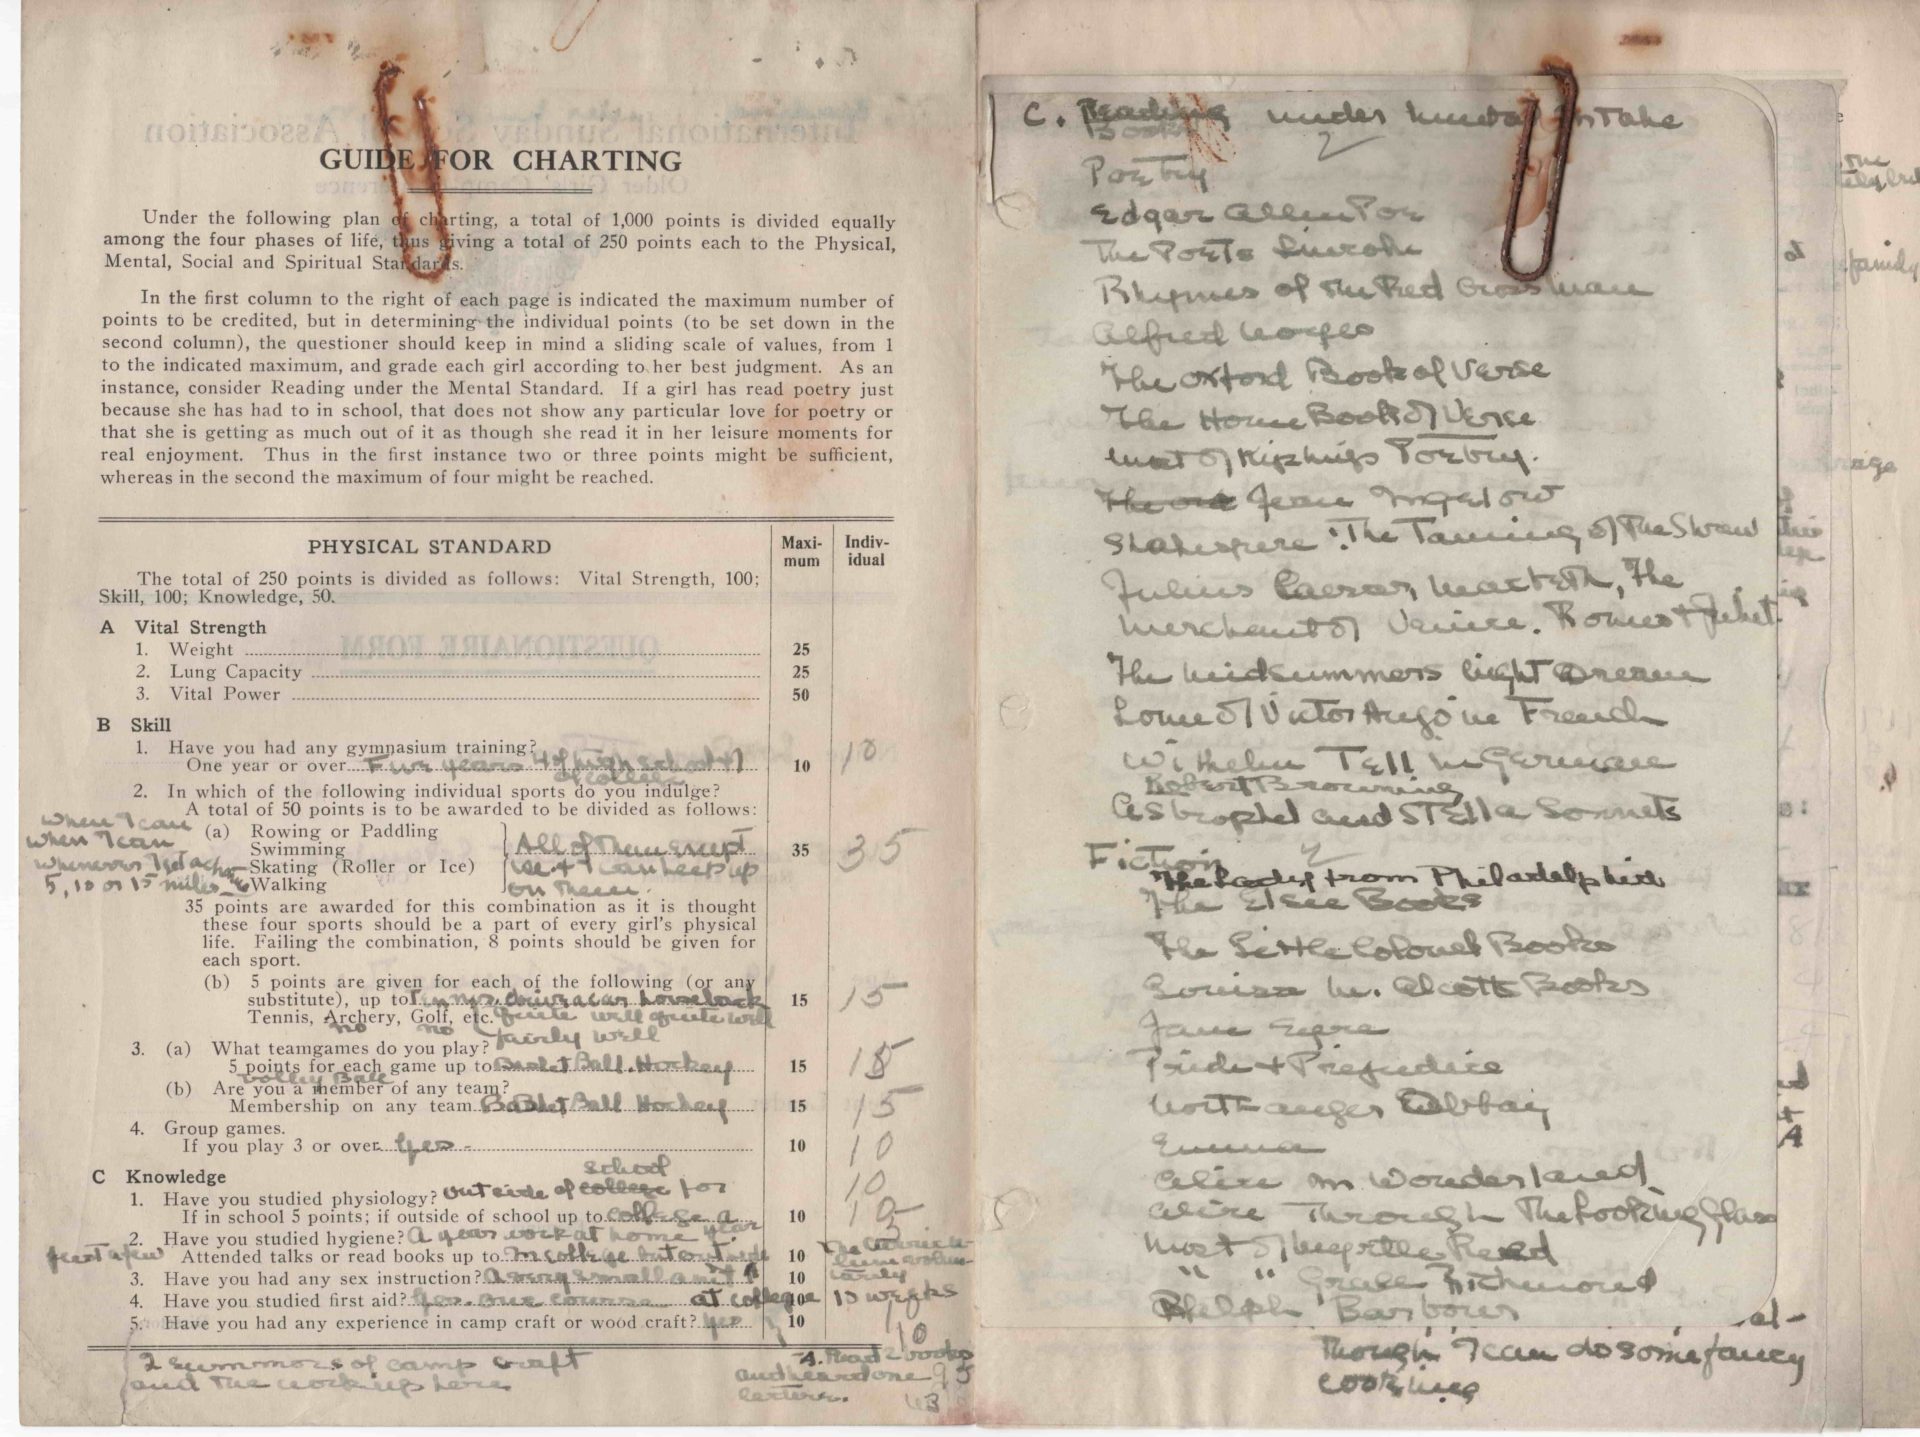 International Sunday School Association
GUIDE FOR CHARTING
Under the following plan of charting, a total of 1,000 points is divided equally
among the four phases of life, thus giving a total of 250 points each to the Physical,
Mental, Social and Spiritual Standards.
In the first column to the right of each page is indicated the maximum number of
points to be credited, but in determining the individual points (to be set down in the
second column), the questioner should keep in mind a sliding scale of values, from 1
to the indicated maximum, and grade each girl according to her best judgment. As an
instance, consider Reading under the Mental Standard. If a girl has read poetry just
because she has had to in school, that does not show any particular love for poetry or
that she is getting as much out of it as though she read it in her leisure moments for
real enjoyment. Thus in the first instance two or three points might be sufficient,
whereas in the second the maximum of four might be reached.
PHYSICAL STANDARD
Maxi-
mum
Indiv-
idual
The total of 250 points is divided as follows: Vital Strength, 100;
Skill, 100; Knowledge, 50.
QUESTIONAIRE FORM
A Vital Strength
1. Weight 25
2. Lung Capacity 25
3. Vital Power 50
B Skill
1. Have you had any gymnasium training?
One year or over Five years 4 of high school + 1 10 10
of college
2. In which of the following individual sports do you indulge?
A total of 50 points is to be awarded to be divided as follows:
when I can (a) Rowing or Paddling
when I can Swimming All of them except 35 35
whenever I get a chance Skating (Roller or Ice) ice + I can keep up
5, 10 or 15 miles Walking on them.
35 points are awarded for this combination as it is thought
these four sports should be a part of every girl's physical
life. Failing the combination, 8 points should be given for
each sport.
(b) 5 points are given for each of the following (or any
substitute), up to Tennis, drive a car horseback 15 15
Tennis, Archery, Golf, etc. quite well quite well
no no fairly well
3. (a) What teamgames do you play?
5 points for each game up to Basket Ball. Hockey 15 15
Volley Ball
(b) Are you a member of any team?
Membership on any team Basket Ball Hockey 15 15
4. Group games.
If you play 3 or over yes - 10 10
C Knowledge
school
1. Have you studied physiology? outside of college for 10
If in school 5 points; if outside of school up to college a 10
year
2. Have you studied hygiene? A years work at home
just a few Attended talks or read books up to In college but outside 10
3. Have you had any sex instruction? a very small amt 10
4. Have you studied first aid? Yes. one course at college 10 10 weeks
5. Have you had any experience in camp craft or wood craft? yes 10 10
2 summers of camp craft
and the work up here
4. Read 2 books
and heard one
lecture.
95
C. Reading under mental Intake
Books
Poetry
Edgar Allen Poe
The Poets Lincoln
Rhymes of the Red Cross man
Alfred Noyes
The Oxford Book of Verse
The Home Book of Verse
most of Kiplings Poetry.
The Jean Ingelow
Shakespere: The Taming of the Shrew
Julius Caesar, Macbeth, The
Merchant of Venice. Romeo + Juliet.
The Midsummers Night Dream
Some of Victor Hugo in French
Wilhelm Tell in German
Robert Browning
Astrophel and Stella Sonnets
Fiction
The Lady from Philadelphia
The Elsie Books
The Little Colonel Books
Louisa M. Alcotts Books
Jane Eyre
Pride + Prejudice
Northanger Abbay
Emma
Alice in Wonderland
Alice Through The Looking Glass
Most of Myrtle Reed
" " Grace Richmond
Ralph Barbour
al-
though I can do some fancy
cooking
family